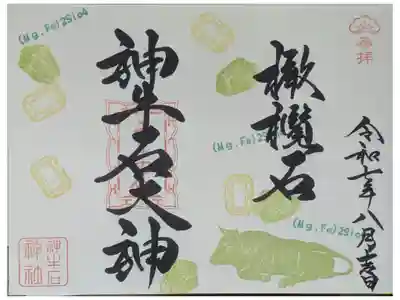 奉拝
橄欖石
令和七年八月吉日
神牛石大神
(Mg,Fe)2SiO4
(Mg,Fe)2SiO4
(Mg,Fe)2SiO4
(Mg,Fe)2SiO4